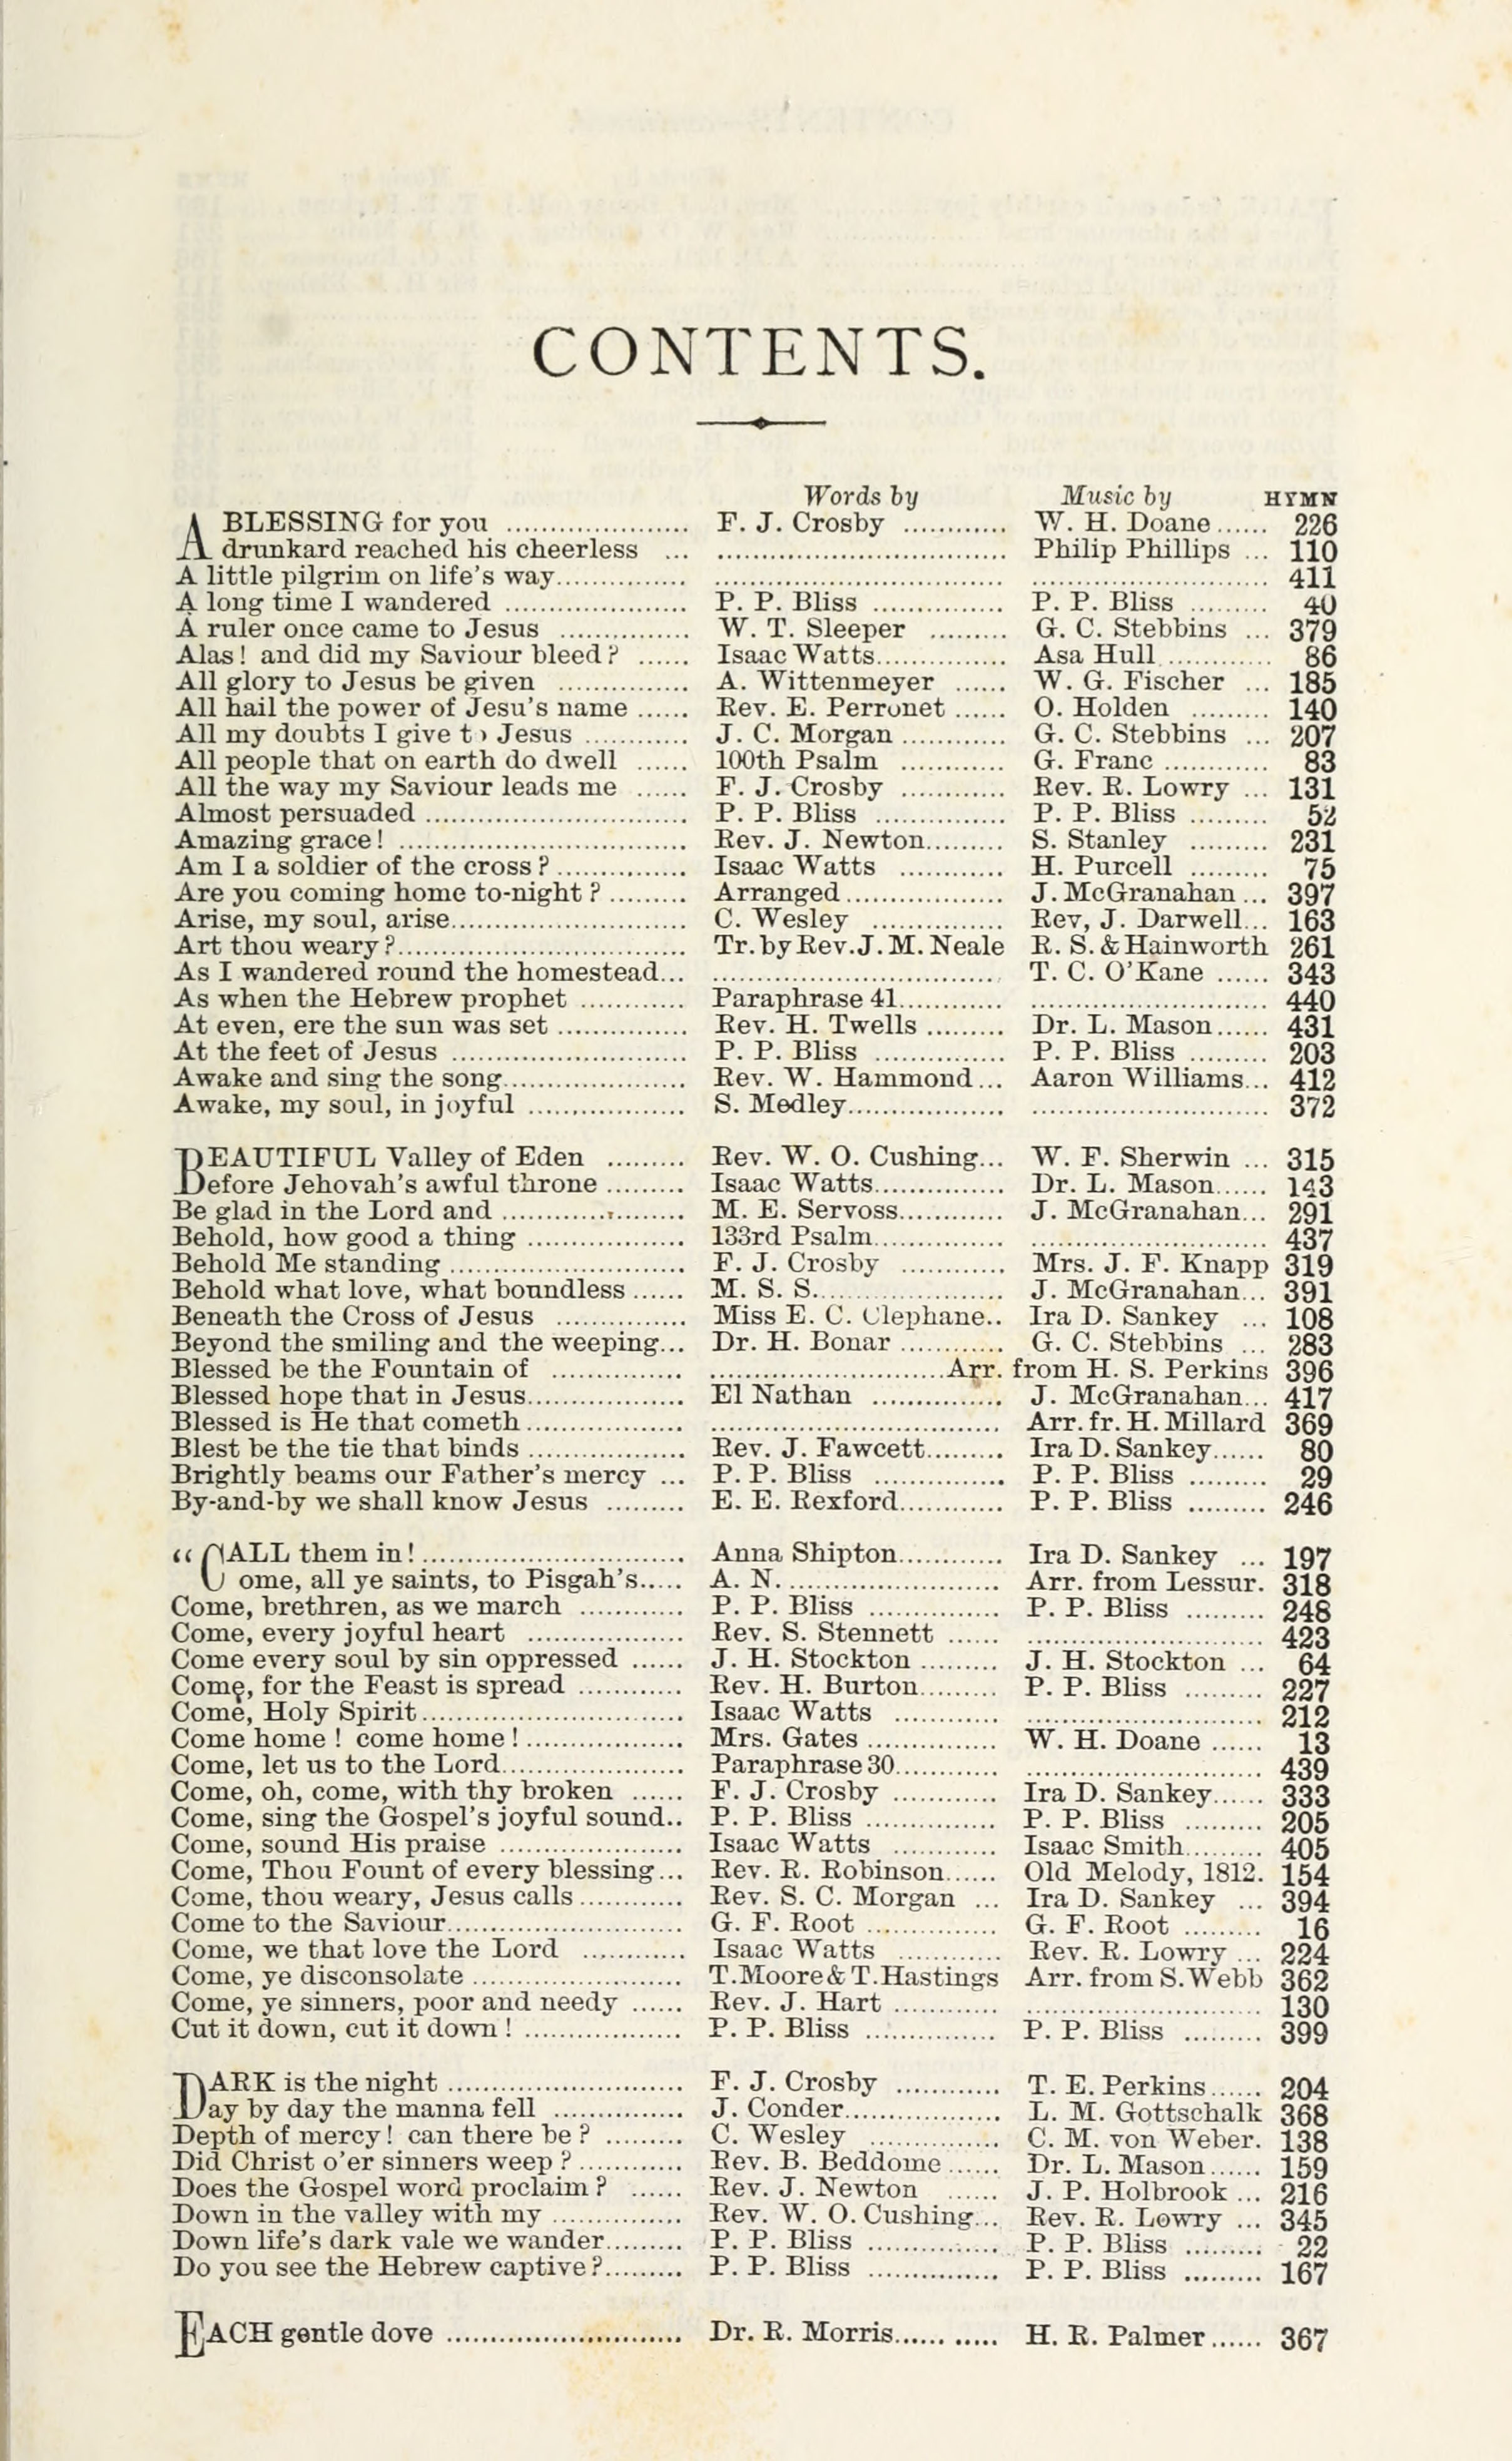 CONTENTS.
Words by Music by HYMN
A BLESSING for you ..................... F. J. Crosby ............ W. H. Doane ...... 226
drunkard reached his cheerless ... ................................. Philip Phillips ... 110
A little pilgrim on life's way ............... ................................. ........................... 411
A long time I wandered ..................... P. P. Bliss ............... P. P. Bliss ......... 40
A ruler once came to Jesus ............... W. T. Sleeper ......... G. C. Stebbins ... 379
Alas! and did my Saviour bleed? ...... Isaac Watts ............... Asa Hull ............ 86
All glory to Jesus be given ............... A. Wittenmeyer ...... W. G. Fischer ... 185
All hail the power of Jesu's name ...... Rev. E. Perronet ...... O. Holden ......... 140
All my doubts I give to Jesus ............ J. C. Morgan ............ G. C. Stebbins ... 207
All people that on earth do dwell ...... 100th Psalm ............ G. Franc ............ 83
All the way my Saviour leads me ...... F. J. Crosby ............ Rev. R. Lowry ... 131
Almost persuaded .............................. P. P. Bliss ............... P. P. Bliss ......... 52
Amazing grace! ................................. Rev. J. Newton ......... S. Stanley ......... 231
Am I a soldier of the cross? ............... Isaac Watts ............ H. Purcell ......... 75
Are you coming home to-night? ......... Arranged .................. J. McGranahan ... 397
Arise, my soul, arise ........................... C. Wesley ............... Rev, J. Darwell ... 163
Art thou weary? ................................. Tr. by Rev. J. M. Neale R. S. & Hainworth 261
As I wandered round the homestead ... ................................. T. C. O'Kane ...... 343
As when the Hebrew prophet ............ Paraphrase 41 ............ ........................... 440
At even, ere the sun was set ............... Rev. H. Twells ......... Dr. L. Mason ...... 431
At the feet of Jesus ........................... P. P. Bliss ............... P. P. Bliss ......... 203
Awake and sing the song ..................... Rev. W. Hammond ... Aaron Williams ... 412
Awake, my soul, in joyful .................. S. Medley .................. ........................... 372
BEAUTIFUL Valley of Eden ......... Rev. W. O. Cushing ... W. F. Sherwin ... 315
Before Jehovah's awful throne ......... Isaac Watts ............... Dr. L. Mason ...... 143
Be glad in the Lord and ..................... M. E. Servoss ............ J. McGranahan ... 291
Behold, how good a thing .................. 133rd Psalm ............... ........................... 437
Behold Me standing ........................... F. J. Crosby ............ Mrs. J. F. Knapp 319
Behold what love, what boundless ...... M. S. S. ..................... J. McGranahan ... 391
Beneath the Cross of Jesus ............... Miss E. C. Clephane .. Ira D. Sankey ... 108
Beyond the smiling and the weeping ... Dr. H. Bonar ............ G. C. Stebbins ... 283
Blessed be the Fountain of ............... ........................... Arr. from H. S. Perkins 396
Blessed hope that in Jesus .................. El Nathan ............... J. McGranahan ... 417
Blessed is He that cometh .................. ................................. Arr. fr. H. Millard 369
Blest be the tie that binds .................. Rev. J. Fawcett ......... Ira D. Sankey ...... 80
Brightly beams our Father's mercy ... P. P. Bliss ............... P. P. Bliss ......... 29
By-and-by we shall know Jesus ......... E. E. Rexford ............ P. P. Bliss ......... 246
"CALL them in! .............................. Anna Shipton ............ Ira D. Sankey ... 197
Come, all ye saints, to Pisgah's ..... A. N. ........................ Arr. from Lessur. 318
Come, brethren, as we march ............ P. P. Bliss ............... P. P. Bliss ......... 248
Come, every joyful heart .................. Rev. S. Stennett ...... ........................... 423
Come every soul by sin oppressed ...... J. H. Stockton ......... J. H. Stockton ... 64
Come, for the Feast is spread ............ Rev. H. Burton ......... P. P. Bliss ......... 227
Come, Holy Spirit .............................. Isaac Watts ............ ........................... 212
Come home! come home! .................. Mrs. Gates ............... W. H. Doane ...... 13
Come, let us to the Lord ..................... Paraphrase 30 ............ ........................... 439
Come, oh, come, with thy broken ...... F. J. Crosby ............ Ira D. Sankey ...... 333
Come, sing the Gospel's joyful sound .. P. P. Bliss ............... P. P. Bliss ......... 205
Come, sound His praise ..................... Isaac Watts ............ Isaac Smith ......... 405
Come, Thou Fount of every blessing ... Rev. R. Robinson ...... Old Melody, 1812. 154
Come, thou weary, Jesus calls ............ Rev. S. C. Morgan ... Ira D. Sankey ... 394
Come to the Saviour ........................... G. F. Root ............... G. F. Root ......... 16
Come, we that love the Lord ............ Isaac Watts ............ Rev. R. Lowry ... 224
Come, ye disconsolate ........................ T. Moore & T. Hastings Arr. from S. Webb 362
Come, ye sinners, poor and needy ...... Rev. J. Hart ............ ........................... 130
Cut it down, cut it down! .................. P. P. Bliss ............... P. P. Bliss ......... 399
DARK is the night ........................... F. J. Crosby ............ T. E. Perkins ...... 204
Day by day the manna fell ............... J. Conder .................. L. M. Gottschalk 368
Depth of mercy! can there be? ......... C. Wesley ............... C. M. von Weber. 138
Did Christ o'er sinners weep? ............ Rev. B. Beddome ...... Dr. L. Mason ...... 159
Does the Gospel word proclaim? ...... Rev. J. Newton ...... J. P. Holbrook ... 216
Down in the valley with my ............... Rev. W. O. Cushing ... Rev. R. Lowry ... 345
Down life's dark vale we wander ......... P. P. Bliss ............... P. P. Bliss ......... 22
Do you see the Hebrew captive? ......... P. P. Bliss ............... P. P. Bliss ......... 167
EACH gentle dove ........................... Dr. R. Morris ............ H. R. Palmer ...... 367